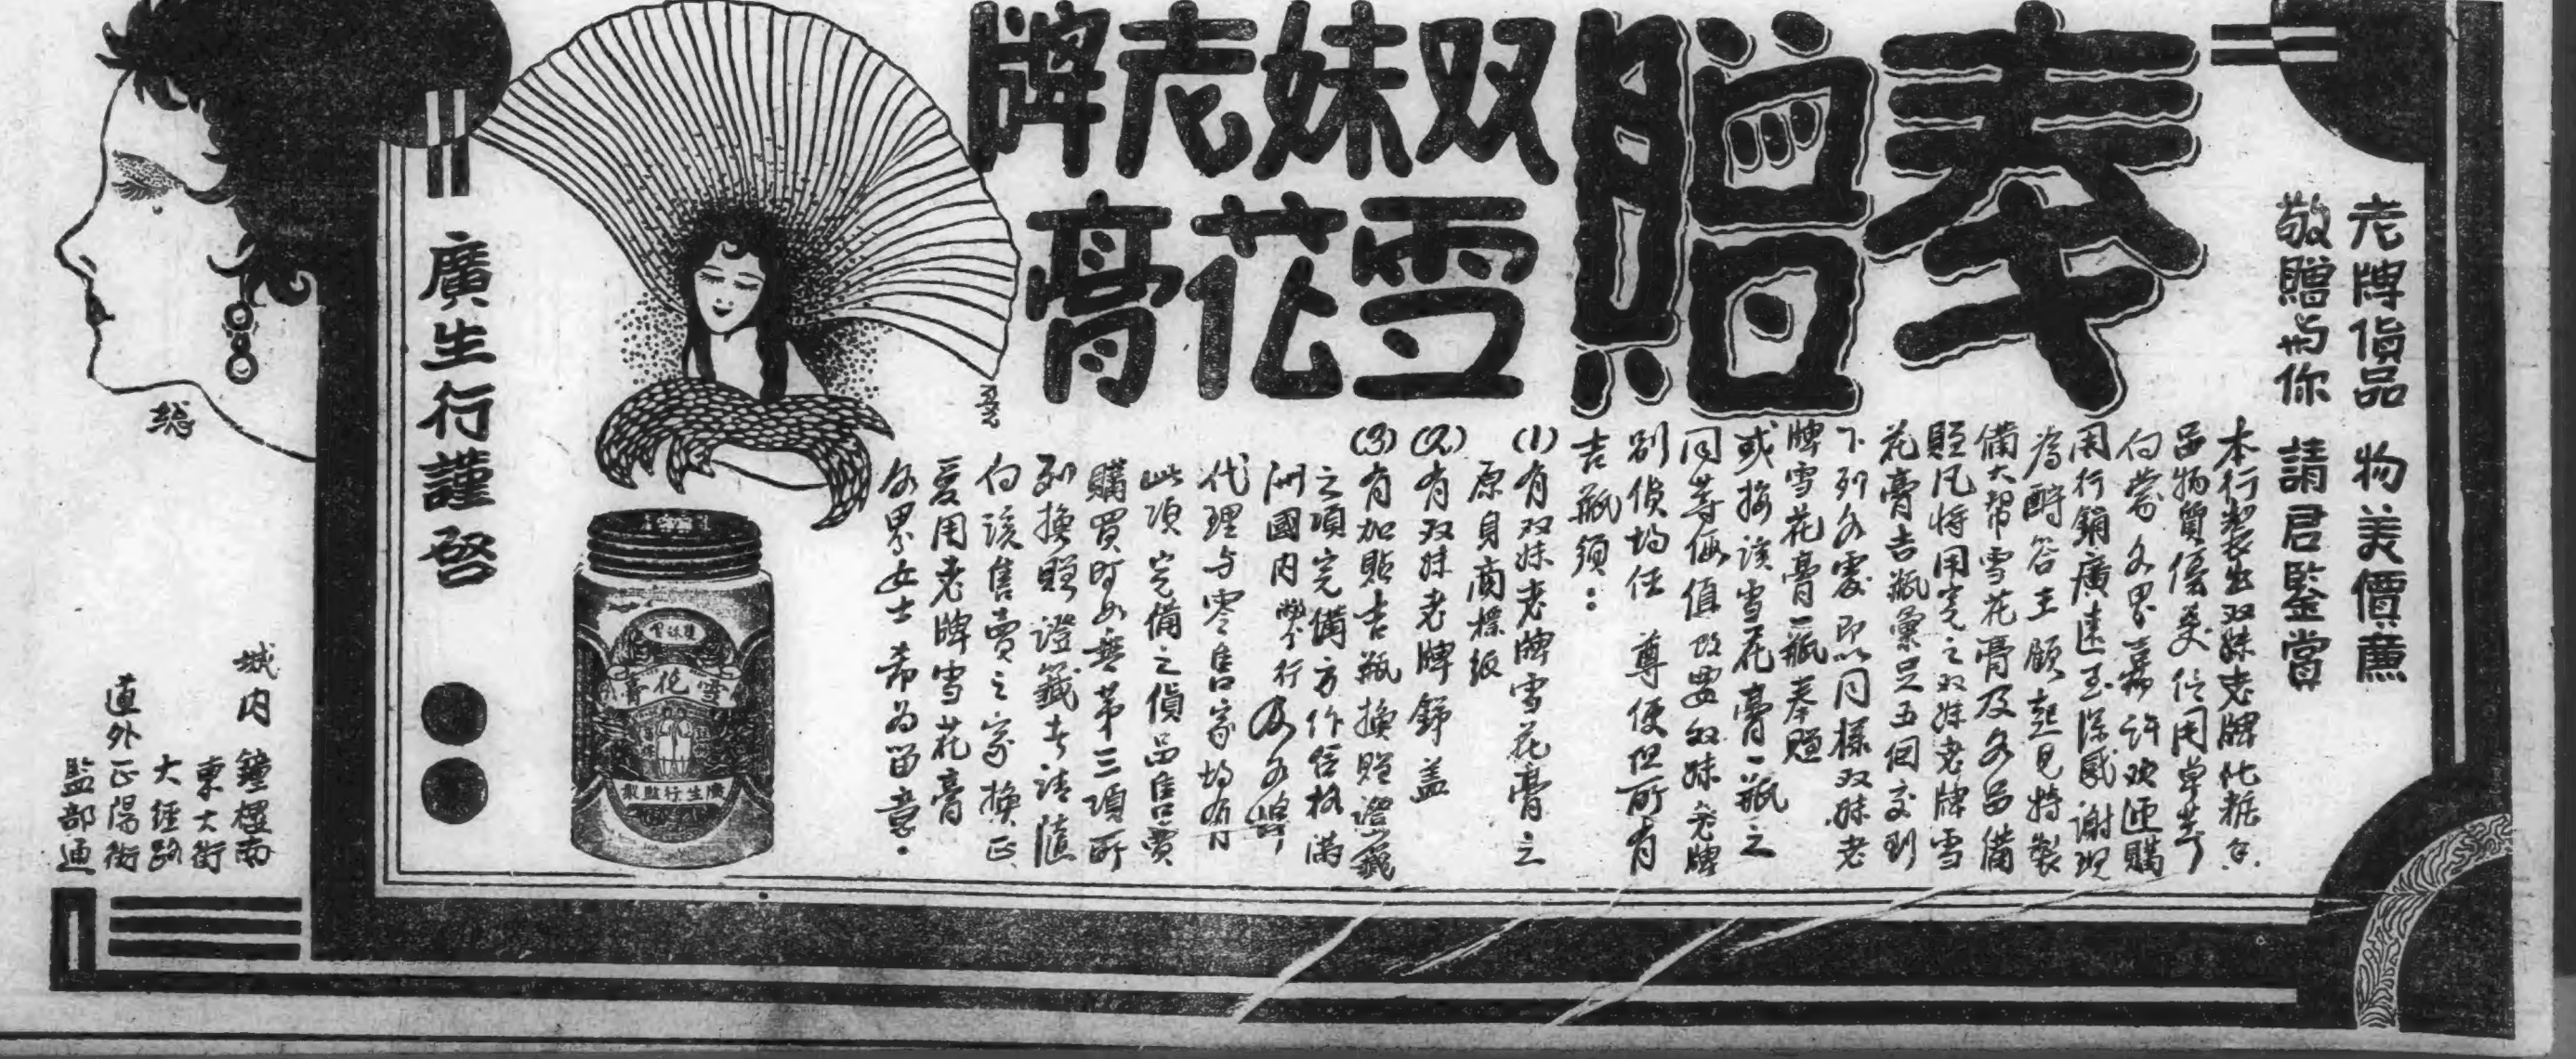 奉贈
双妹老牌
雪花膏
老牌貨品 物美價廉
敬贈与你 請君鑒賞
本行製出双妹老牌化粧各
品物質優美
向蒙各界士 許欢迎購
用行銷廣遠至深感謝現
為酬答主顧起見特製
備大帮雪花膏及各品備
贈凡將用完之双妹老牌雪
花膏吉瓶彙足五個交到
下列各處即以同樣双妹老
牌雪花膏一瓶奉贈
或按該雪花膏一瓶之
同等價值改要双妹老牌
別貨均任 尊便但所有
吉瓶須：
(1)有双妹老牌雪花膏之
原身商標紙
(2)有双妹老牌錚盖
(3)有加貼吉瓶換贈證籤
之項完備方作信格滿
洲國内 行及各
代理与零售家均有
此項完備之貨品售賣
購買時如無第三項所
列換贈證籤者請隨
向該售賣之家換正
爱用老牌雪花膏
各界女士希為留意。
雙妹嘜
雪花膏
廣生行監製
廣生行謹啓
總
城内 鐘樓南
東大街
大經路
道外正陽街
監部通